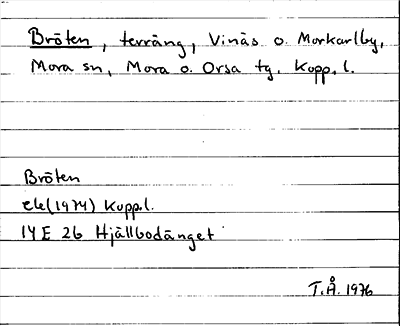 Bröten, terräng, Vinäs o. Morkarlby,
Mora sn, Mora o. Orsa tg. Kopp. l.
Bröten
ek(1974) Koppl.
14E 2b Hjällbodänget
T.Å. 1976